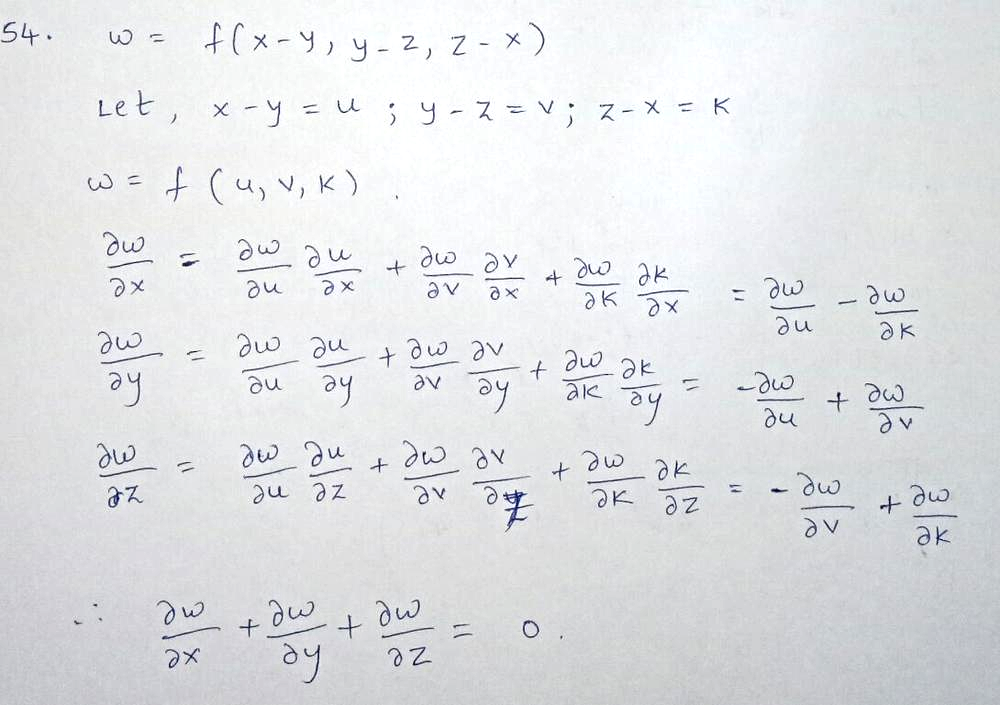 54. w = f(x-y, y-z, z-x)
Let, x-y = u ; y-z = v; z-x = k
w = f (u, v, k) .
∂w/∂x = ∂w/∂u ∂u/∂x + ∂w/∂v ∂v/∂x + ∂w/∂k ∂k/∂x = ∂w/∂u - ∂w/∂k
∂w/∂y = ∂w/∂u ∂u/∂y + ∂w/∂v ∂v/∂y + ∂w/∂k ∂k/∂y = -∂w/∂u + ∂w/∂v
∂w/∂z = ∂w/∂u ∂u/∂z + ∂w/∂v ∂v/∂z + ∂w/∂k ∂k/∂z = -∂w/∂v + ∂w/∂k
∴ ∂w/∂x + ∂w/∂y + ∂w/∂z = 0 .